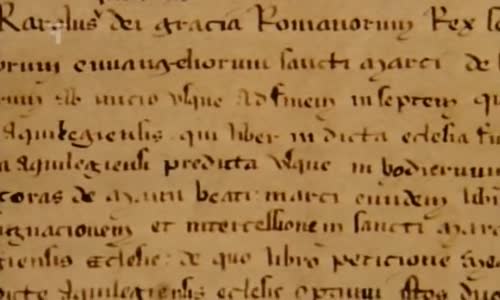 Karolus dei gracia Romanorum Rex
orum euuangeliorum sancti marci de
ab inicio usque ad finem in septem
Aquilegiensis qui liber in dicta eclesia
Aquilegiensi predicta usque in hodiernum
de manu beati marci eiusdem
et intercessionem sancti
giensis Eclesie de quo libro peticione
Aquilegiensis eclesie optinui